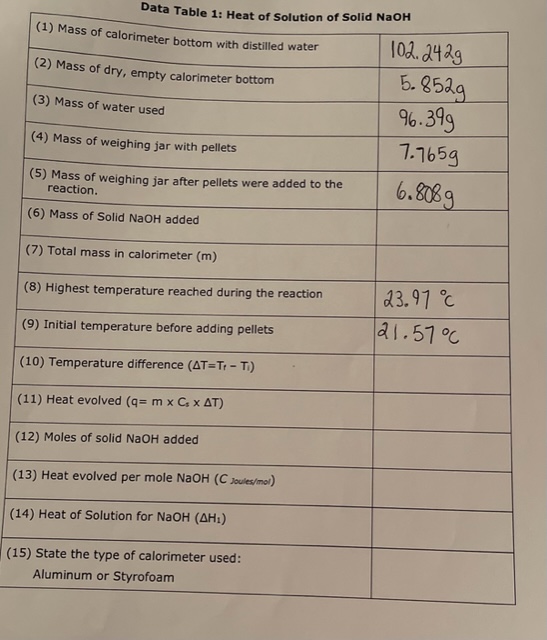 Data Table 1: Heat of Solution of Solid NaOH
(1) Mass of calorimeter bottom with distilled water
102.242g
(2) Mass of dry, empty calorimeter bottom
5.852g
(3) Mass of water used
96.39g
(4) Mass of weighing jar with pellets
7.765g
(5) Mass of weighing jar after pellets were added to the
reaction.
6.808g
(6) Mass of Solid NaOH added
(7) Total mass in calorimeter (m)
(8) Highest temperature reached during the reaction
23.97 °C
(9) Initial temperature before adding pellets
21.57 °C
(10) Temperature difference (ΔT=Tf – Ti)
(11) Heat evolved (q= m x Cs x ΔT)
(12) Moles of solid NaOH added
(13) Heat evolved per mole NaOH (C Joules/mol)
(14) Heat of Solution for NaOH (ΔH1)
(15) State the type of calorimeter used:
Aluminum or Styrofoam